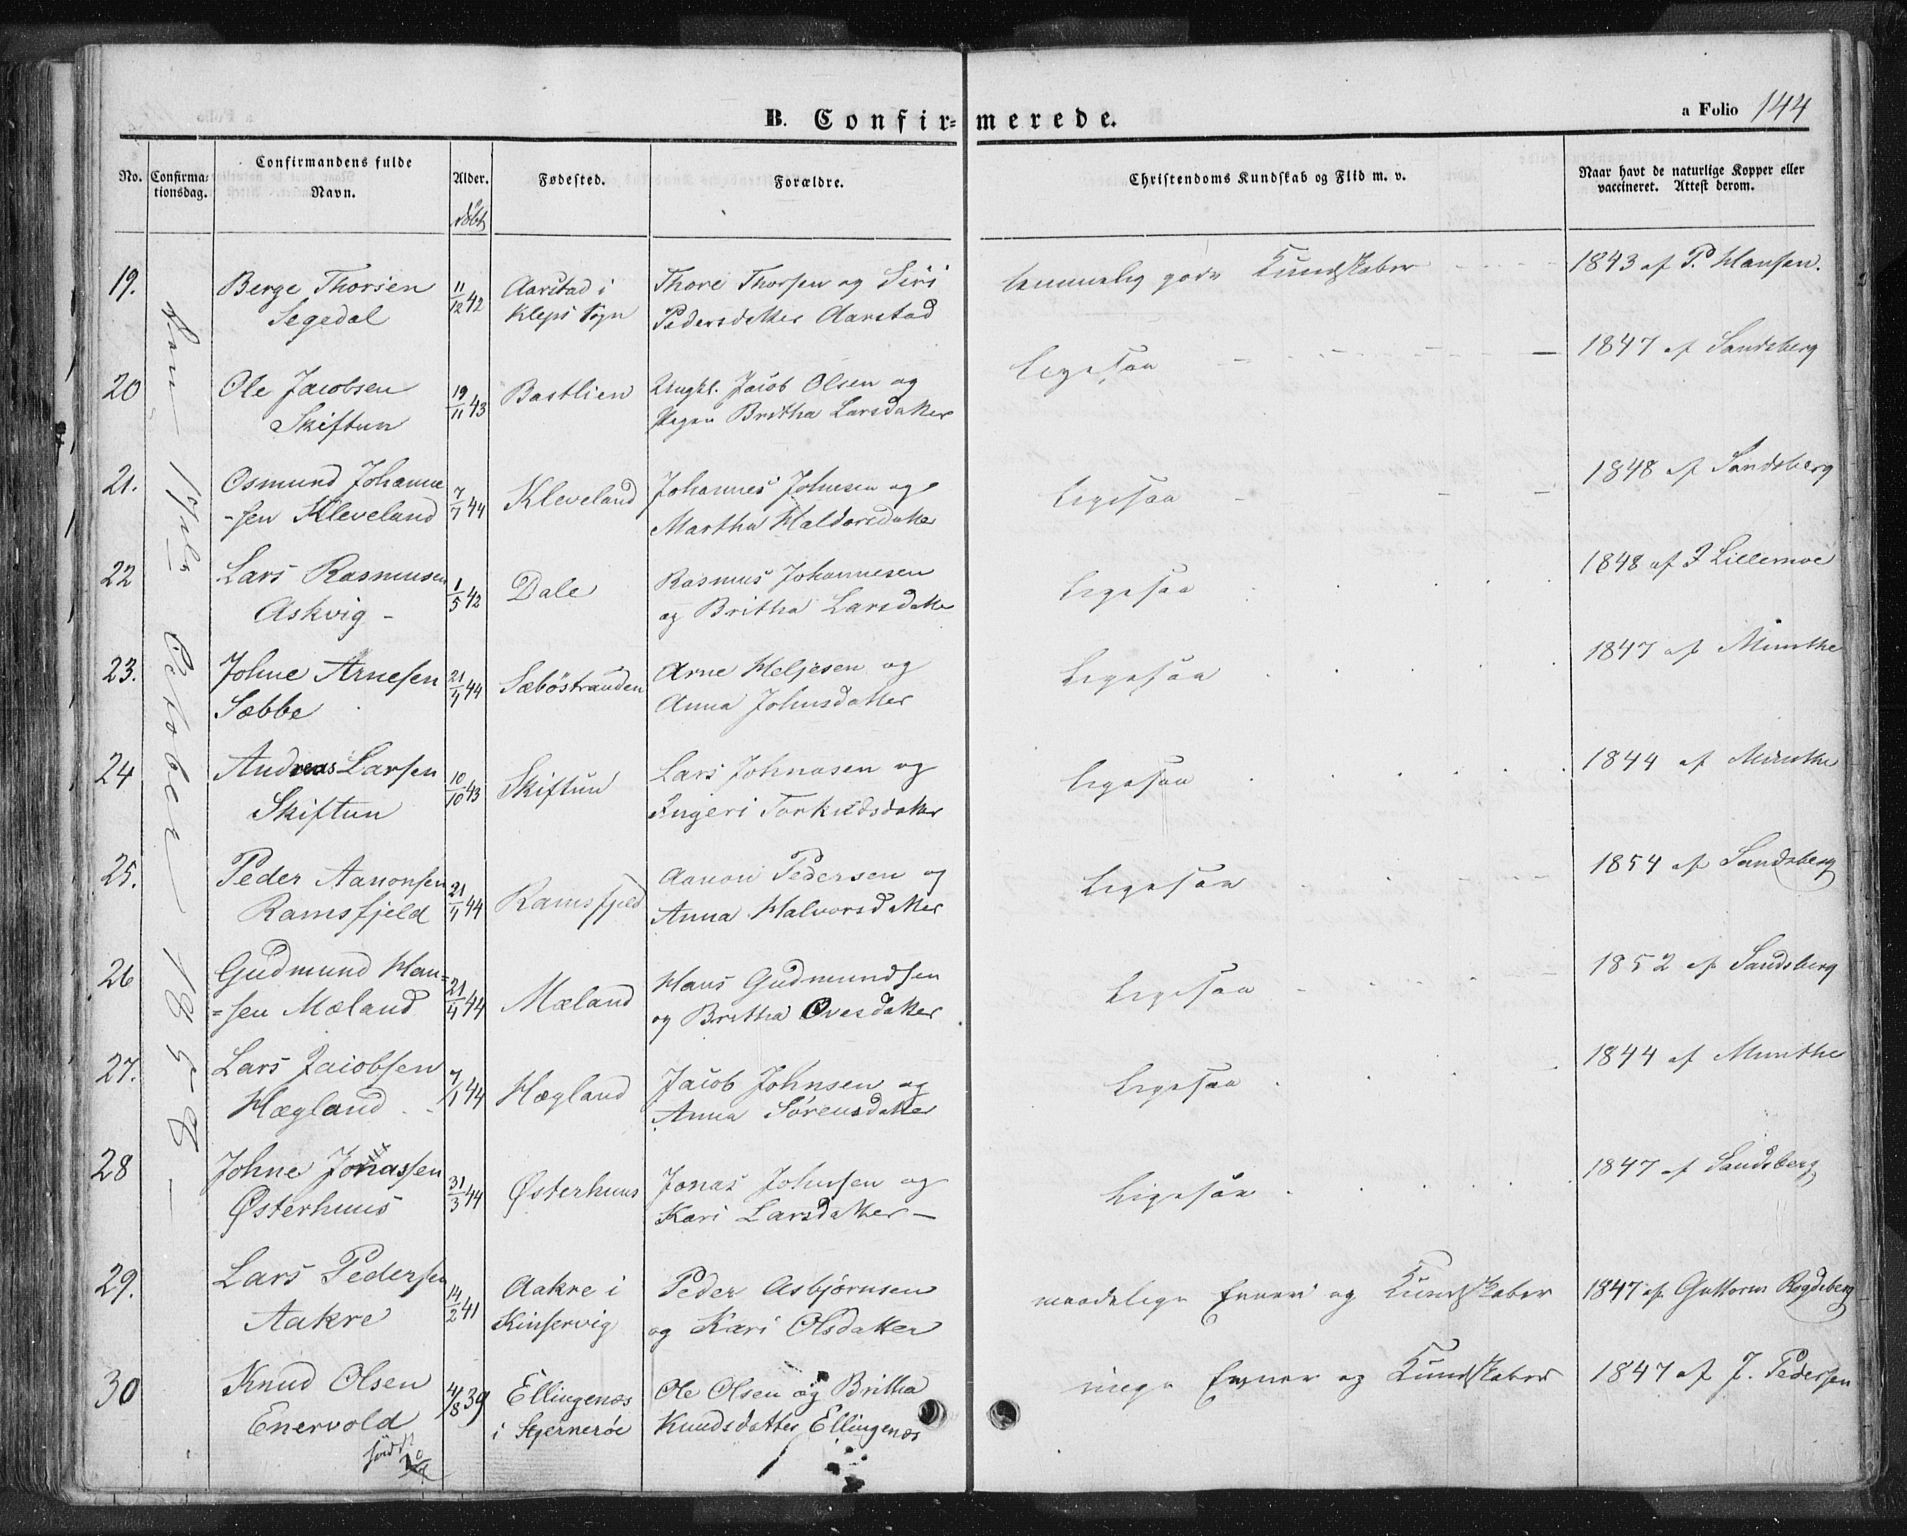 B. Confir= merede. a Folio 144
No. Confirma= tionsdag. Confirmandens fulde Navn. Alder. Fødested. Forældre. Christendoms Kundskab og Flid m. v. Naar havt de naturlige Kopper eller vaccineret. Attest derom.
döbt
den October 1858
19. Berge Thorsen 11/12 42 Aarstad i Thore Thorsen og Siri temmelig gode Kundskaber 1843 af P. Hansen.
Segedal Kleps Sogn Pedersdatter Aarstad
20 Ole Jacobsen 19/11 43 Bastlien Ungkl. Jacob Olsen og Ligesaa 1847 af Sandsberg
Skiftun Pigen Britha Larsdatter
21. Osmund Johanne 7/1 44 Kleveland Johannes Johnsen og Ligesaa 1848 af Sandsberg
-sen Kleveland Martha Haldorsdatter
22 Lars Rasmusen 1/5 42 Dale Rasmus Johannesen Ligesaa 1848 af J Lillemoe
Askvig - og Britha Larsdatter
23. Johne Arnesen 21/1 44 Sæböstranden Arne Heljesen og Ligesaa 1847 af Munthe
Sæbbe Anna Johnsdatter
24 Andreas Larsen 10/10 43 Skiftun Lars Johnasen og Ligesaa 1844 af Munthe
Skiftun Ingeri Torkildsdatter
25. Peder Aanonsen 21/1 44 Ramsfjeld Aanon Pedersen og Ligesaa 1854 af Sandsberg
Ramsfjeld Anna Halvorsdatter
26 Gudmund Han= 21/1 44 Mæland Hans Gudmundsen Ligesaa 1852 af Sandsberg
=sen Mæland og Britha Ovesdatter
27. Lars Jacobsen 7/1 44 Hægland Jacob Johnsen og Ligesaa 1844 af Munthe
Hægland Anna Sörensdatter
28 Johne Jonassen 31/3 44 Østerhuus Jonas Johnsen og Ligesaa 1847 af Sandsberg
Østerhuus Kari Larsdatter -
29. Lars Pedersen 14/2 41 Aakre i Peder Asbjørnsen maadelige Evner og Kundskaber 1847 af Guttorm Rogdeberg
Aakre Kinservig og Kari Olsdatter
30 Knud Olsen 4/8 39 Ellingenæs Ole Olsen og Britha ringe Evner og Kundskaber 1847 af J. Pedersen
Enervold i Stjernerøe Knudsdatter Ellingenæs
född